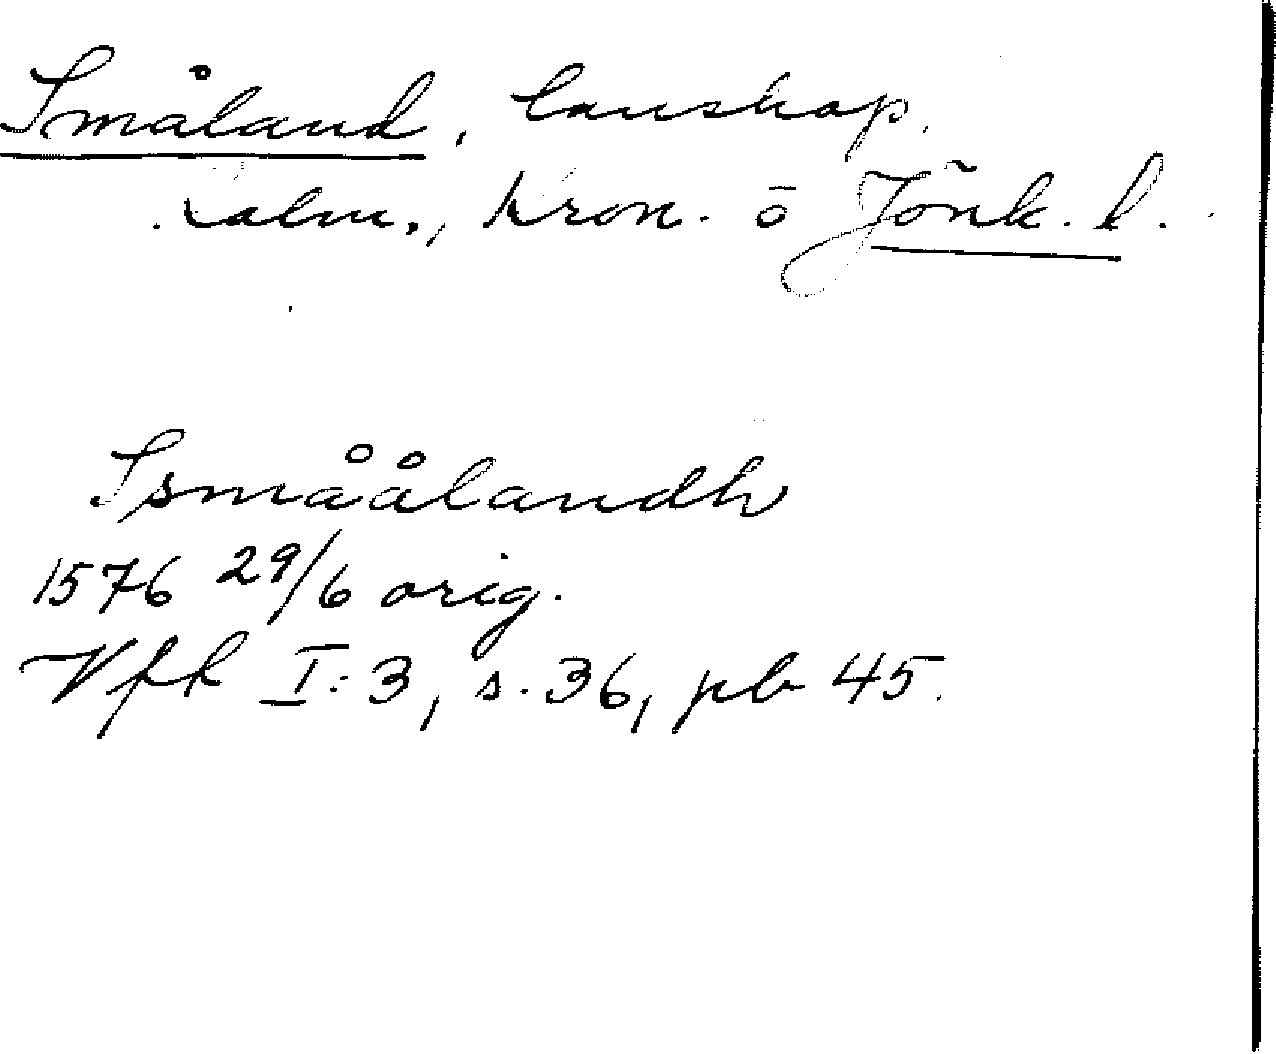 Småland, lanskap.
Kalm., Kron. ō Jönk. l.
Ssmåålandh
1576 29/6 orig.
Vfk I:3, s. 36, pb 45.